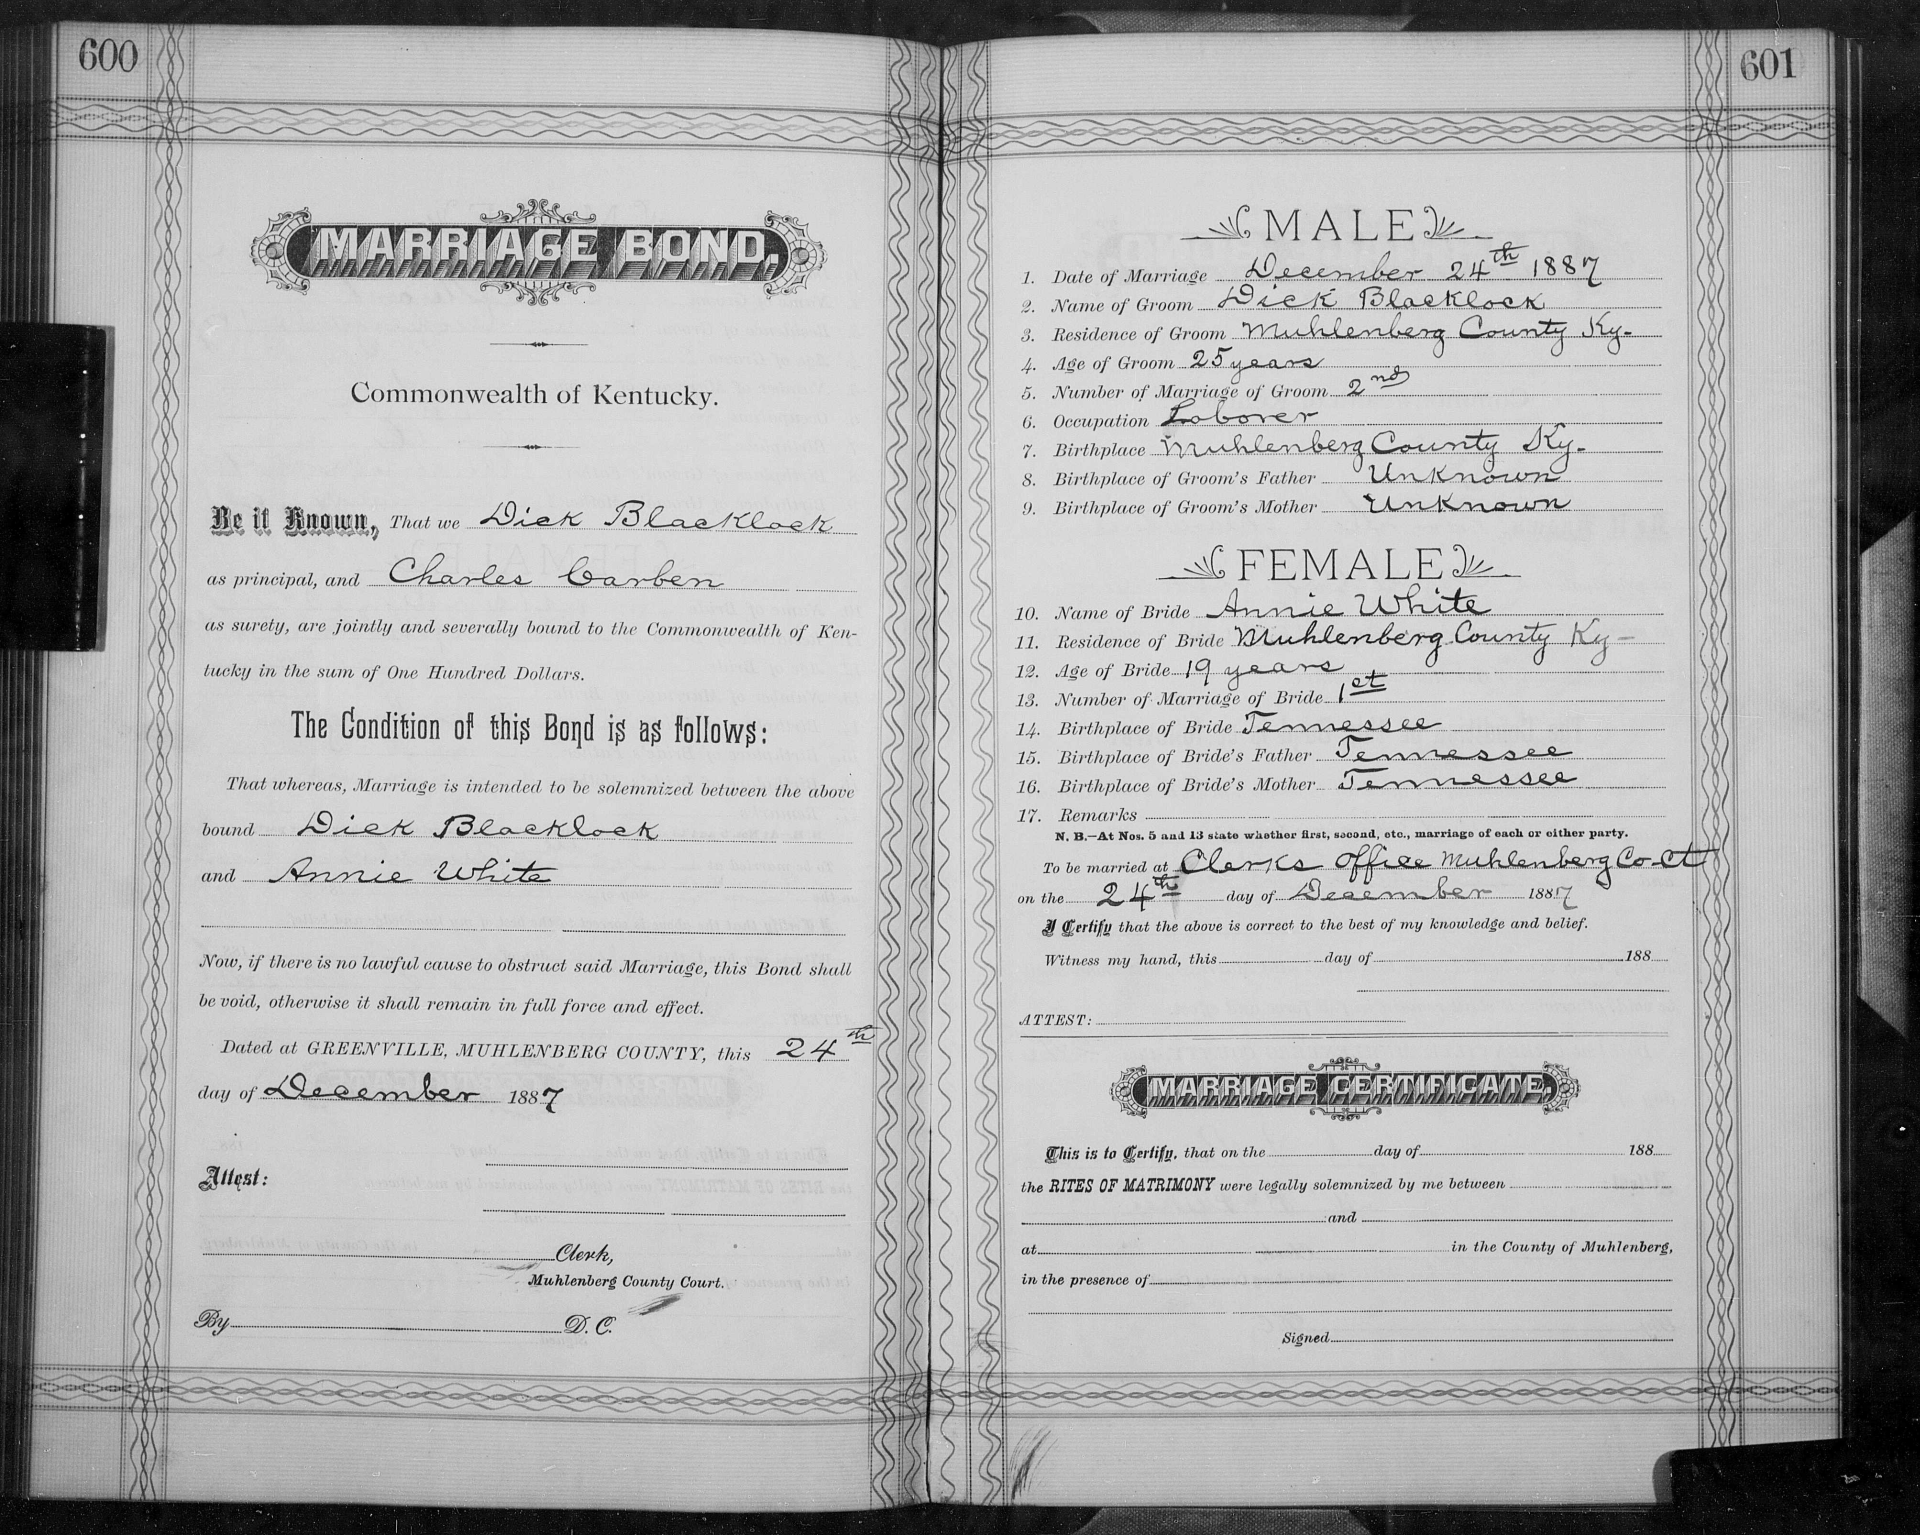 600
MARRIAGE BOND,
Commonwealth of Kentucky.
Be it Known, That we Dick Blacklock
as principal, and Charles Carben
as surety, are jointly and severally bound to the Commonwealth of Ken-
tucky in the sum of One Hundred Dollars.
The Condition of this Bond is as follows:
That whereas, Marriage is intended to be solemnized between the above
bound Dick Blacklock
and Annie White
Now, if there is no lawful cause to obstruct said Marriage, this Bond shall
be void, otherwise it shall remain in full force and effect.
Dated at GREENVILLE, MUHLENBERG COUNTY, this 24th
day of December 1887
Attest:
Clerk,
Muhlenberg County Court.
By D. C.
601
MALE
1. Date of Marriage December 24th 1887
2. Name of Groom Dick Blacklock
3. Residence of Groom Muhlenberg County Ky-
4. Age of Groom 25 years
5. Number of Marriage of Groom 2nd
6. Occupation Laborer
7. Birthplace Muhlenberg County Ky-
8. Birthplace of Groom's Father Unknown
9. Birthplace of Groom's Mother Unknown
FEMALE
10. Name of Bride Annie White
11. Residence of Bride Muhlenberg County Ky-
12. Age of Bride 19 years
13. Number of Marriage of Bride 1st
14. Birthplace of Bride Tennessee
15. Birthplace of Bride's Father Tennessee
16. Birthplace of Bride's Mother Tennessee
17. Remarks
N. B.—At Nos. 5 and 13 state whether first, second, etc., marriage of each or either party.
To be married at Clerks Office Muhlenberg Co Ct
on the 24th day of December 1887
I Certify that the above is correct to the best of my knowledge and belief.
Witness my hand, this day of 188
ATTEST:
MARRIAGE CERTIFICATE,
This is to Certify, that on the day of 188
the RITES OF MATRIMONY were legally solemnized by me between
and
at in the County of Muhlenberg,
in the presence of
Signed